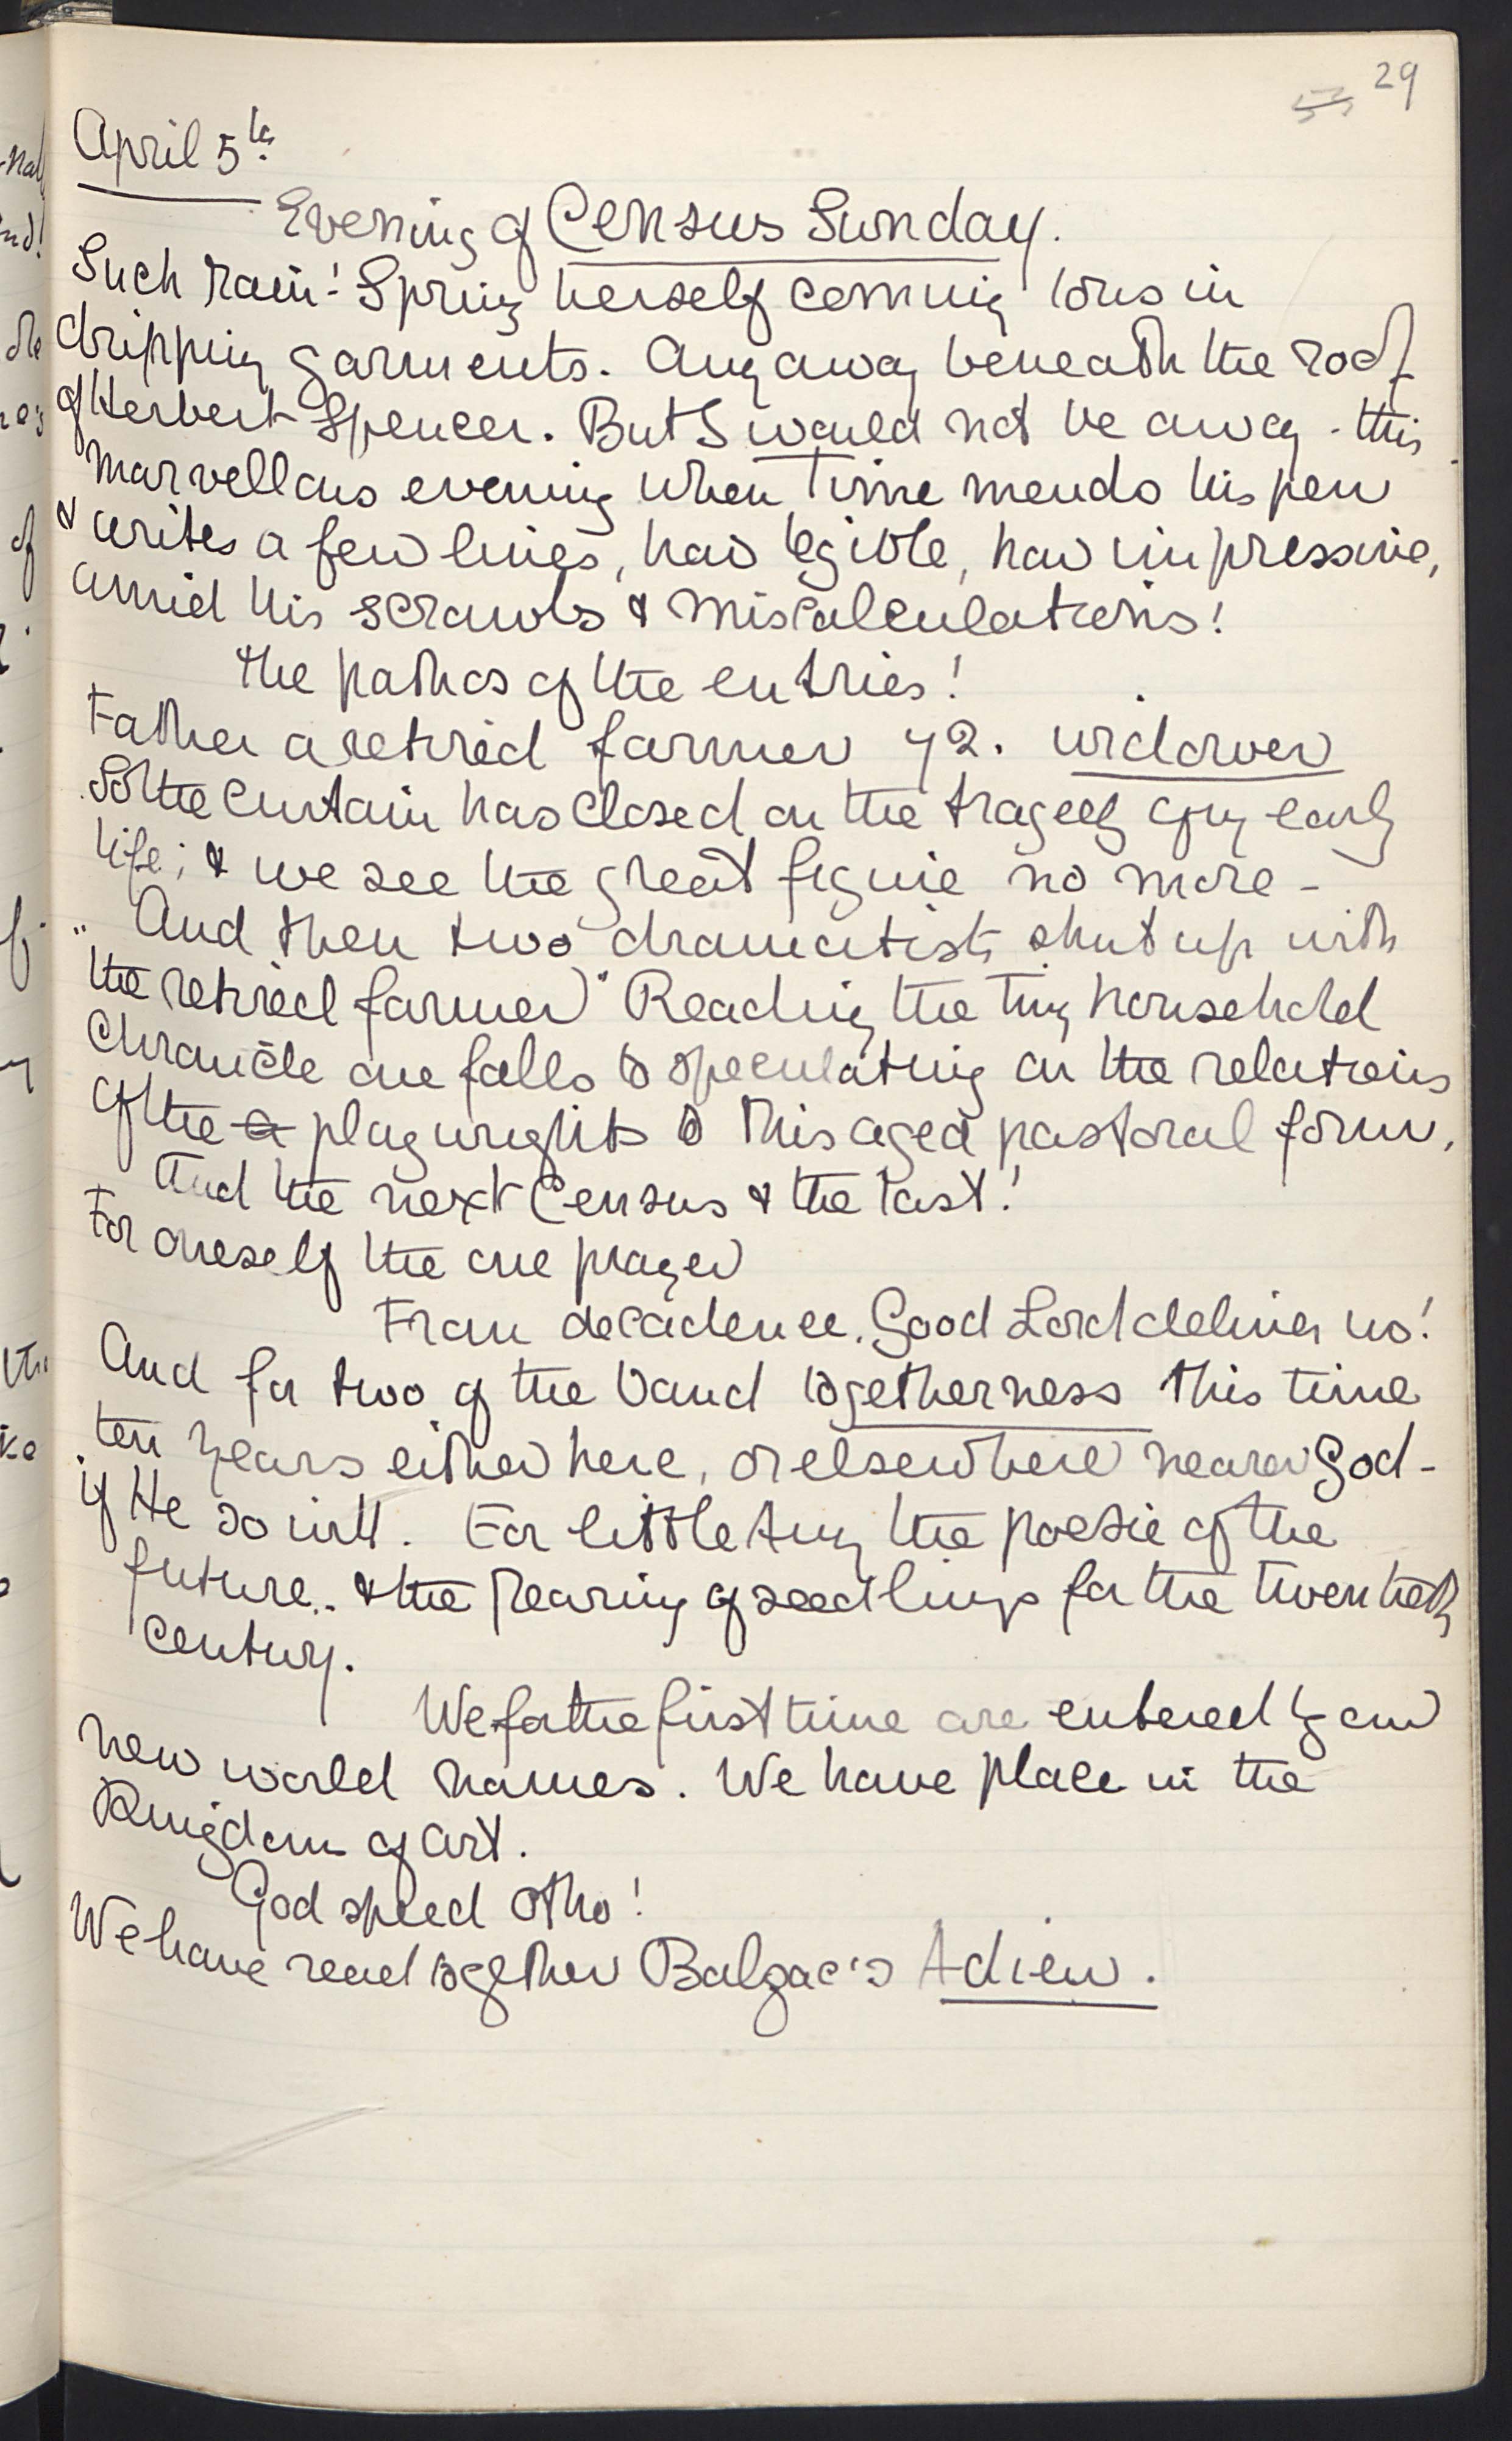 29
April 5th
Evening of Census Sunday.
Such rain! Spring herself coming to us in
dripping garments. Amy away beneath the roof
of Herbert Spencer. But I would not be away - this
marvellous evening when Time mends his pen
& writes a few lines, how legible, how impressive,
amid his scrawls & miscalculations!
the pathos of the entries!
Father a retired farmer 72. widower
So the curtain has closed on the tragedy of my early
life; & we see the great figure no more -
And then two dramatists shut up with
"the retired farmer" Reading the tiny household
Chronicle one falls to speculating on the relations
of the a playwrights to this aged pastoral form.
And the next Census & the last!
For oneself the one prayer
From decadence, Good Lord deliver us!
And for two of the band togetherness this time
ten years either here, or elsewhere nearer God -
if He so will. For little Amy the poesie of the
future.. & the rearing of seedlings for the twentieth
century.
We for the first time are entered by our
new world names. We have place in the
Kingdom of art.
God speed Otho!
We have read together Balzac's Adieu.